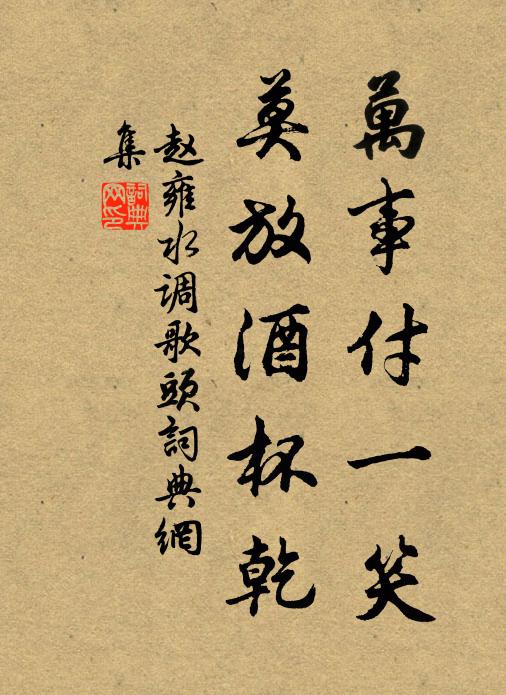 萬事付一笑
莫放酒杯乾
赵雍水调歌頭詞典網
集
詞典
网印